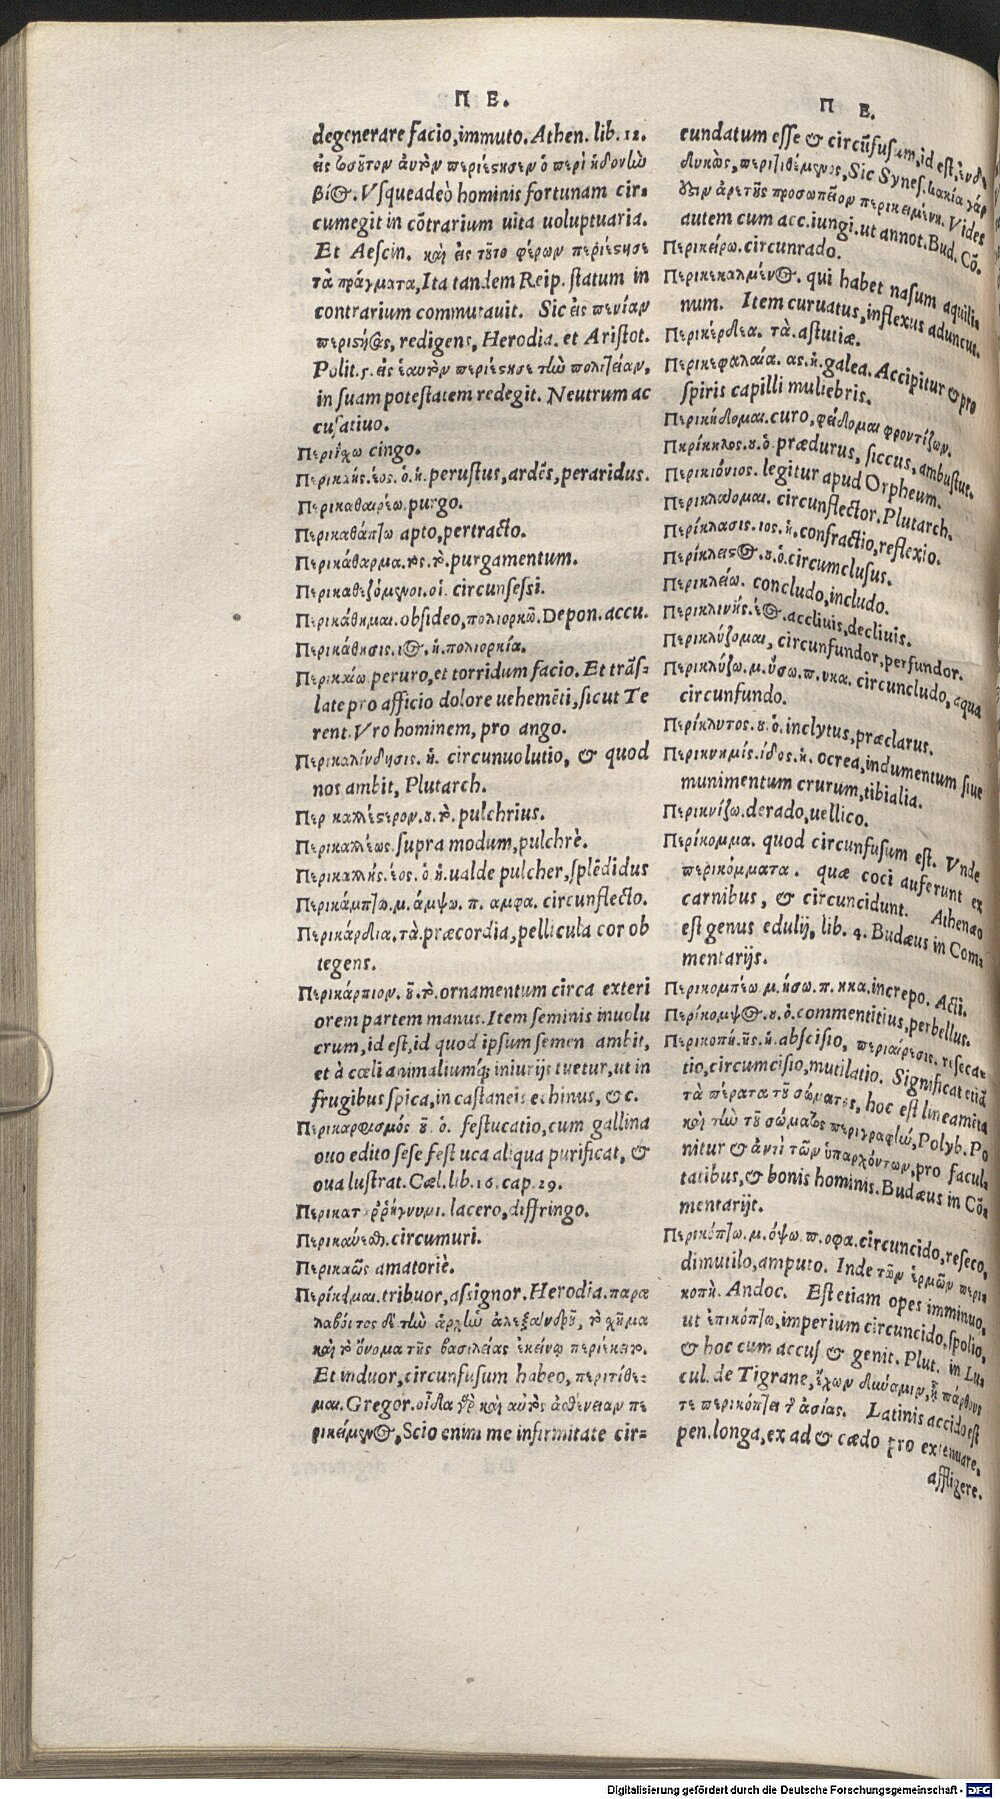 Π Ε.
degenerare facio, immuto. Athen. lib. 12.
εἰς τοσοῦτον αὐτὸν περιέστησεν ὁ περὶ ἡδονὴν
βίος. Vsqueadeò hominis fortunam cir-
cumegit in cõtrarium uita uoluptuaria.
Et Aeschin. καὶ εἰς τοῦτο φέρων περιέστησε
τὰ πράγματα, Ita tandem Reip. statum in
contrarium commutauit. Sic εἰς πενίαν
περιστήσας, redigens, Herodia. et Aristot.
Polit. 5. εἰς ἑαυτὸν περιέστησε τὴν πολιτείαν,
in suam potestatem redegit. Neutrum ac
cusatiuo.
Περιίχω cingo.
Περικαής. έος. ὁ. ἡ. perustus, ardẽs, peraridus.
Περικαθαιρέω purgo.
Περικαθάπτω apto, pertracto.
Περικάθαρμα. τος. τὸ. purgamentum.
Περικαθεζόμενοι. οἱ. circunsessi.
Περικάθημαι. obsideo, πολιορκῶ. Depon. accu.
Περικάθησις. ιος. ἡ. πολιορκία.
Περικαίω peruro, et torridum facio. Et trãs-
late pro afficio dolore uehemẽti, sicut Te
rent. Vro hominem, pro ango.
Περικαλίνδησις. ἡ. circunuolutio, & quod
nos ambit, Plutarch.
Περ καλλέστερον. ου. τὸ. pulchrius.
Περικαλλέως. supra modum, pulchrè.
Περικαλλής. έος. ὁ. ἡ. ualde pulcher, splẽdidus
Περικάμπτω. μ. άμψω. π. αμφα. circunflecto.
Περικάρδια. τὰ. præcordia, pellicula cor ob
tegens.
Περικάρπιον. ου. τὸ. ornamentum circa exteri
orem partem manus. Item seminis inuolu
crum, id est, id quod ipsum semen ambit,
et à cœli animaliumq; iniurijs tuetur, ut in
frugibus spica, in castaneis echinus, &c.
Περικαρφισμός οῦ. ὁ. festucatio, cum gallina
ouo edito sese festuca aliqua purificat, &
oua lustrat. Cæl. lib. 16. cap. 29.
Περικατ ρρήγνυμι. lacero, diffringo.
Περικαύεσθ. circumuri.
Περικαῶς amatoriè.
Περίκειμαι. tribuor, assignor. Herodia. παρα
λαβόντος δὲ τὴν ἀρχὴν ἀλεξάνδρου, τὸ χῆμα
καὶ τὸ ὄνομα τῆς βασιλείας ἐκείνῳ περιέκειτο.
Et induor, circunfusum habeo, περιτίθε-
μαι. Gregor. οἶδα γὰρ καὶ αὐτὸς ἀσθένειαν πε
ρικείμενος, Scio enim me infirmitate cir-
Π Ε.
cundatum esse & circũfusum, id est, ἐνδε
δυκὼς, περιτιθέμενος, Sic Synes. κακία γάρ
ουσιν ἀρετῆς προσωπεῖον περικειμένη. Vides
autem cum acc. iungi. ut annot. Bud. Cõ.
Περικείρω. circunrado.
Περικεκαλμένος. qui habet nasum aquili-
num. Item curuatus, inflexus aduncus.
Περικέρδεα. τὰ. astutiæ.
Περικεφαλαία. ας. ἡ. galea. Accipitur & pro
spiris capilli muliebris.
Περικήδομαι. curo, φείδομαι φροντίζων.
Πκρίκηλος. ου. ὁ. prædurus, siccus, ambustus.
Περικιόνιος. legitur apud Orpheum.
Περικλάομαι. circunflector. Plutarch.
Περίκλασις. ιος. ἡ. confractio, reflexio.
Περίκλειστος. ου. ὁ. circumclusus.
Περικλείω. concludo, includo.
Περικλινής. έος. accliuis, decliuis.
Περικλύζομαι, circunfundor, perfundor.
Περικλύζω. μ. ύσω. π. υκα. circuncludo, aqua
circunfundo.
Περίκλυτος. ου. ὁ. inclytus, præclarus.
Περικνημίς. ίδος. ἡ. ocrea, indumentum siue
munimentum crurum, tibialia.
Περικνίζω. derado, uellico.
Περίκομμα. quod circunfusum est. Vnde
περικόμματα. quæ coci auferunt ex
carnibus, & circuncidunt. Athenæo
est genus edulij, lib. 4. Budæus in Com-
mentarijs.
Περικομπέω μ. ήσω. π. ηκα. increpo. Acti.
Περίκομψος. ου. ὁ. commentitius, perbellus.
Περικοπὴ. ῆς. ἡ. abscisio, περιαίρεσις. reseca-
tio, circumcisio, mutilatio. Significat etiã
τὰ πέρατα τοῦ σώματος, hoc est lineamẽta
καὶ τὴν τοῦ σώματος περιγραφὴν, Polyb. Po
nitur & ἀντὶ τῶν ὑπαρχόντων, pro facul-
tatibus, & bonis hominis. Budæus in Cõ-
mentarijt.
Περικόπτω. μ. όψω. π. οφα. circuncido, reseco,
dimutilo, amputo. Inde τῶν ἑρμῶν περι
κοπὴ. Andoc. Est etiam opes imminuo,
ut ἐπικόπτω, imperium circuncido, spolio,
& hoc cum accus. & genit. Plut. in Lu-
cul. de Tigrane, ἔχων δύναμιν, ᾗ πάρθους
τε περικόπτει τ ἀσίας. Latinis accido est
pen. longa, ex ad & cædo pro extenuare,
affligere.
Digitalisierung gefördert durch die Deutsche Forschungsgemeinschaft - DFG